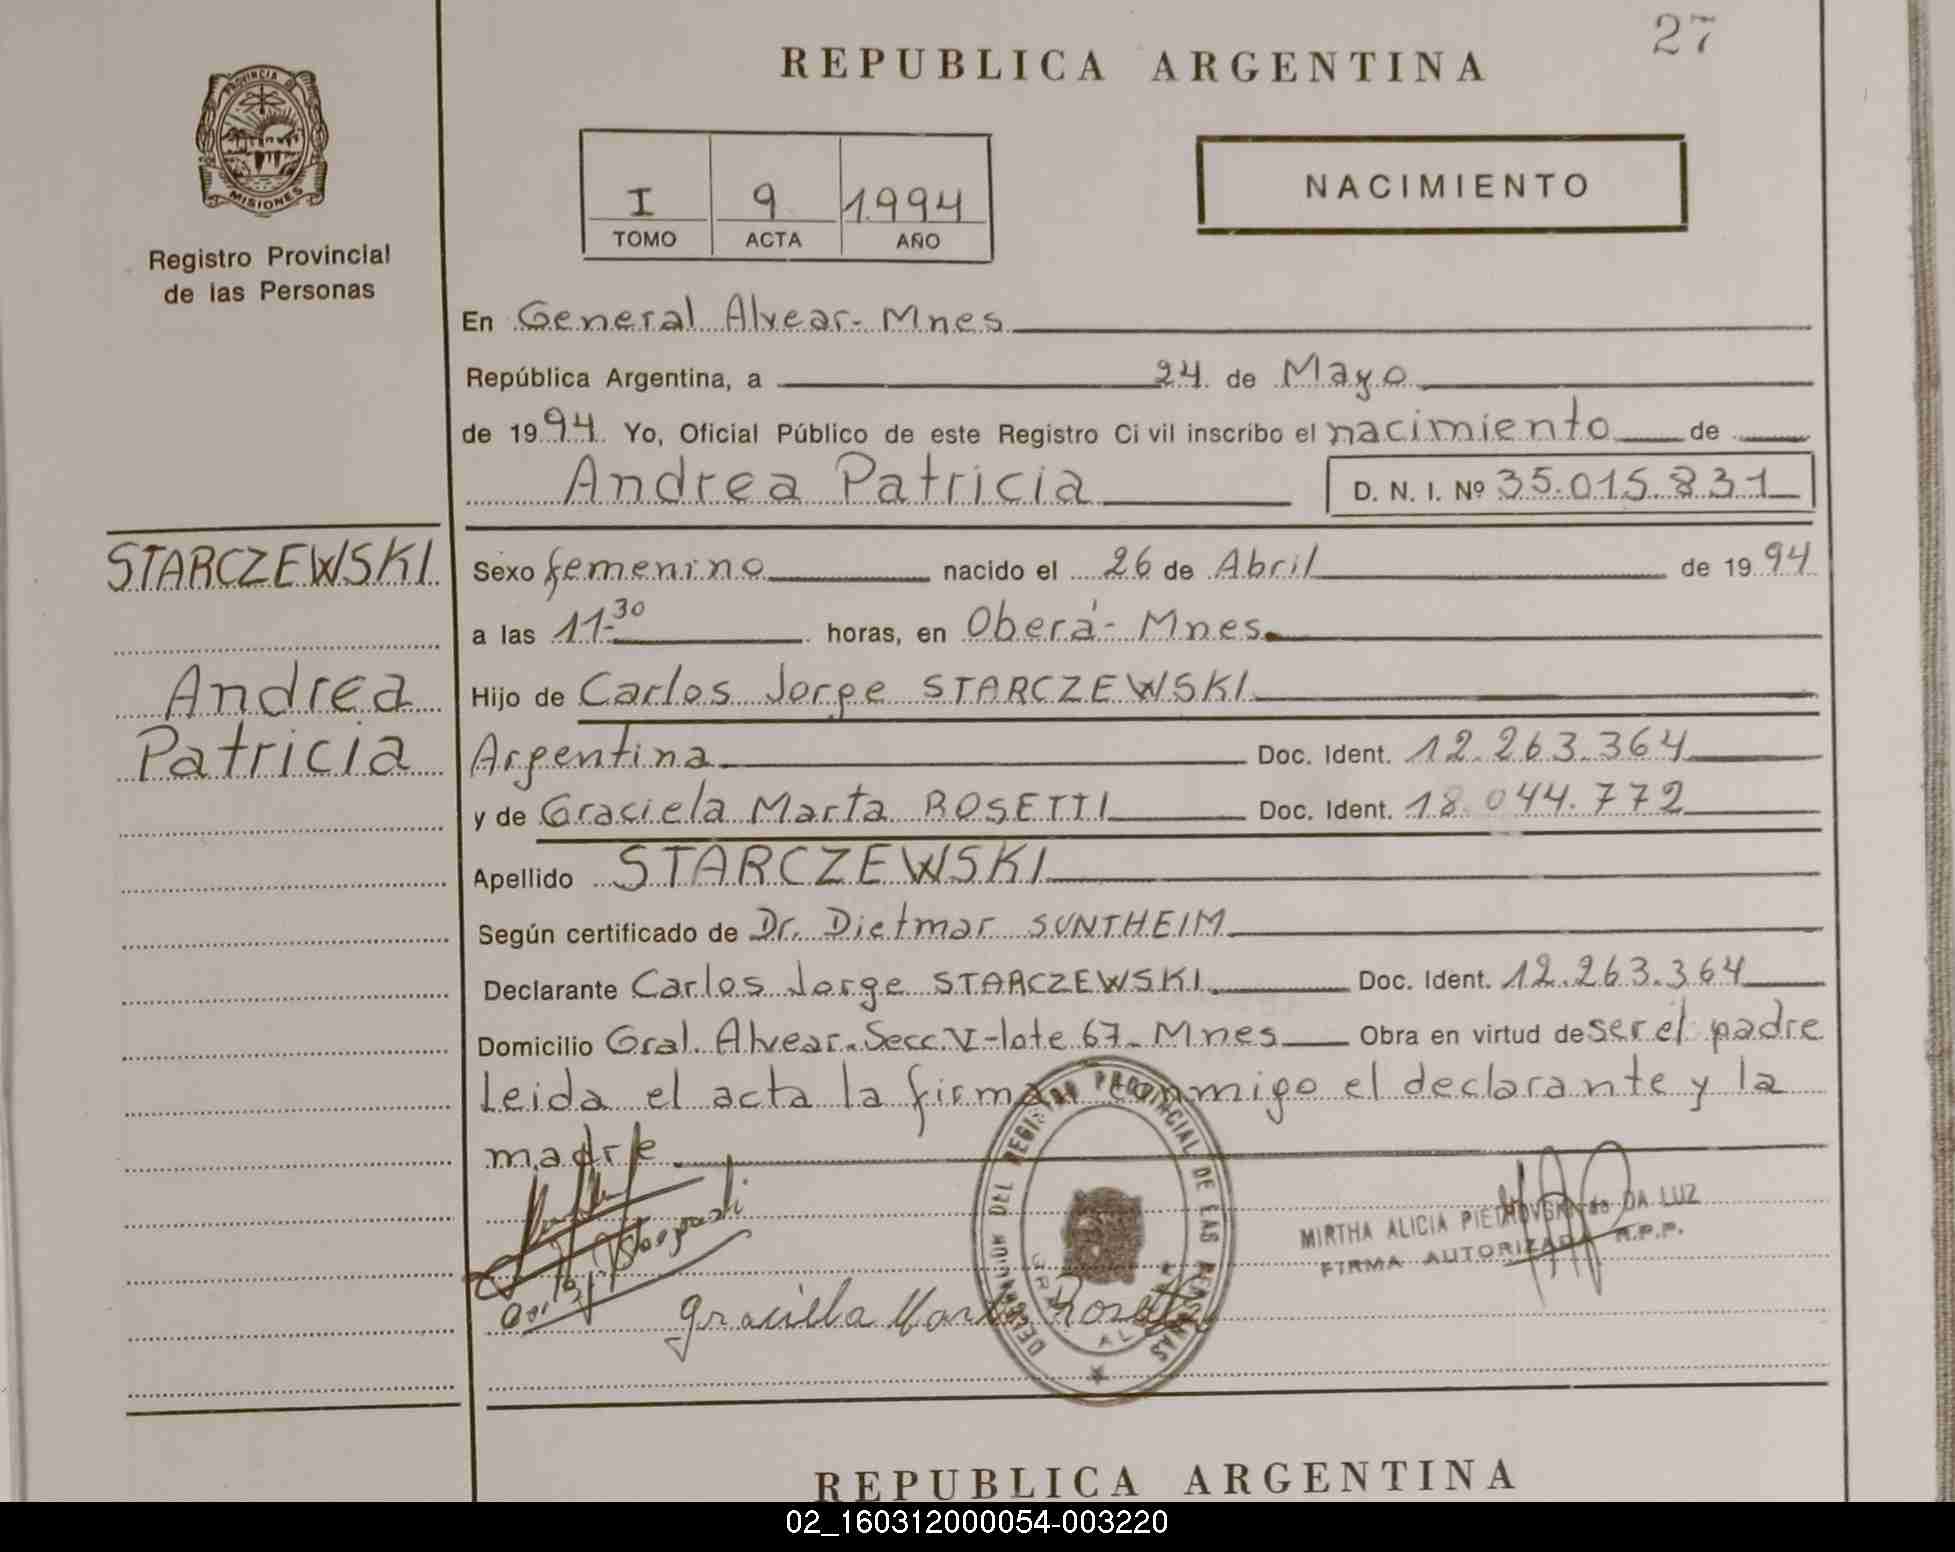 27
REPUBLICA ARGENTINA
PROVINCIA DE
MISIONES
Registro Provincial
de las Personas
I 9 1994
TOMO ACTA AÑO
NACIMIENTO
En General Alvear - Mnes
República Argentina, a 24 de Mayo
de 1994 Yo, Oficial Público de este Registro Civil inscribo el nacimiento de
Andrea Patricia D. N. I. Nº 35.015.831
STARCZEWSKI
Andrea
Patricia
Sexo femenino nacido el 26 de Abril de 1994
a las 11-30 horas, en Oberá - Mnes
Hijo de Carlos Jorge STARCZEWSKI
Argentina Doc. Ident. 12.263.364
y de Graciela Marta ROSETTI Doc. Ident. 18.044.772
Apellido STARCZEWSKI
Según certificado de Dr. Dietmar SUNTHEIM
Declarante Carlos Jorge STARCZEWSKI Doc. Ident. 12.263.364
Domicilio Gral. Alvear. Secc. V - lote 67 - Mnes Obra en virtud de ser el padre
Leida el acta la firman conmigo el declarante y la
madre
DELEGACIÓN DEL REGISTRO PROVINCIAL DE LAS PERSONAS
MIRTHA ALICIA PIETROVSKI de DA LUZ
FIRMA AUTORIZADA R.P.P.
Graciela Marta Rosetti
REPUBLICA ARGENTINA
02_160312000054-003220